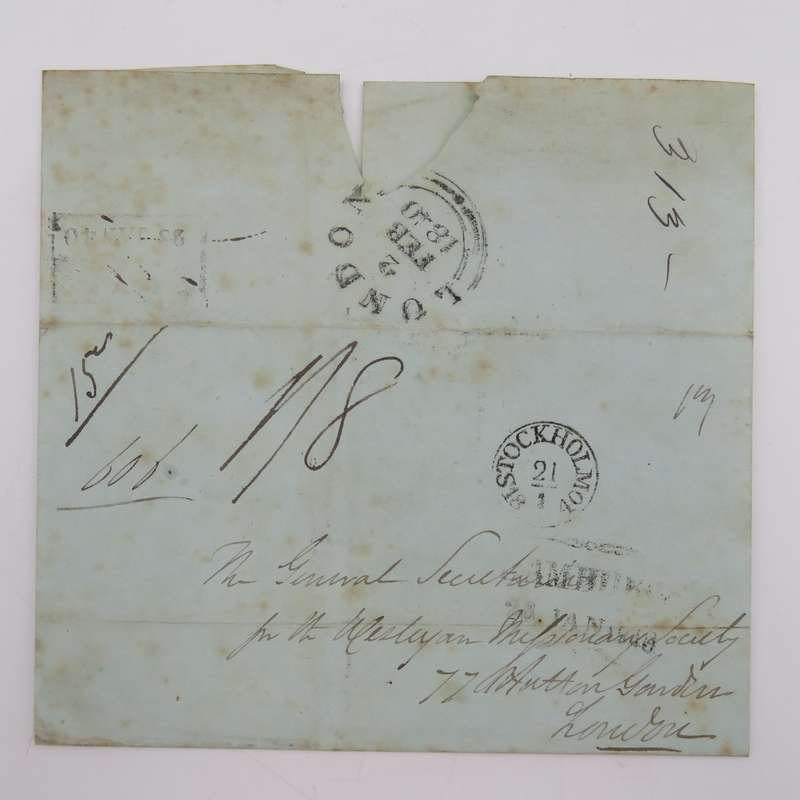 313-
LONDON
2
FEB
1840
JAN 40
15
1/8
606
STOCKHOLM
21
1
The General Secretaries
for the Wesleyan Missionary Society
JAN
77 Hatton Garden
London